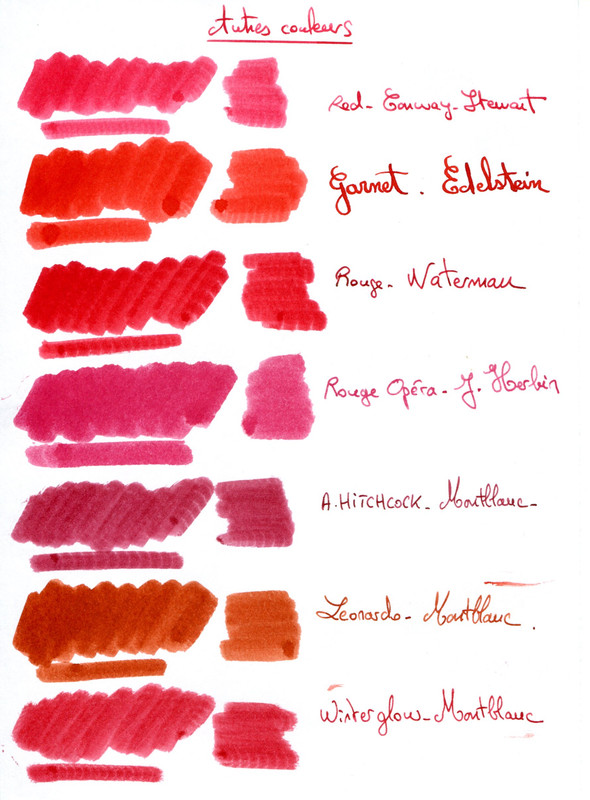 Autres couleurs
Red - Conway - Stewart
Garnet . Edelstein
Rouge - Waterman
Rouge Opéra - J. Herbin
A. HITCHCOCK - Montblanc -
Leonardo - Montblanc .
Winterglow - Montblanc